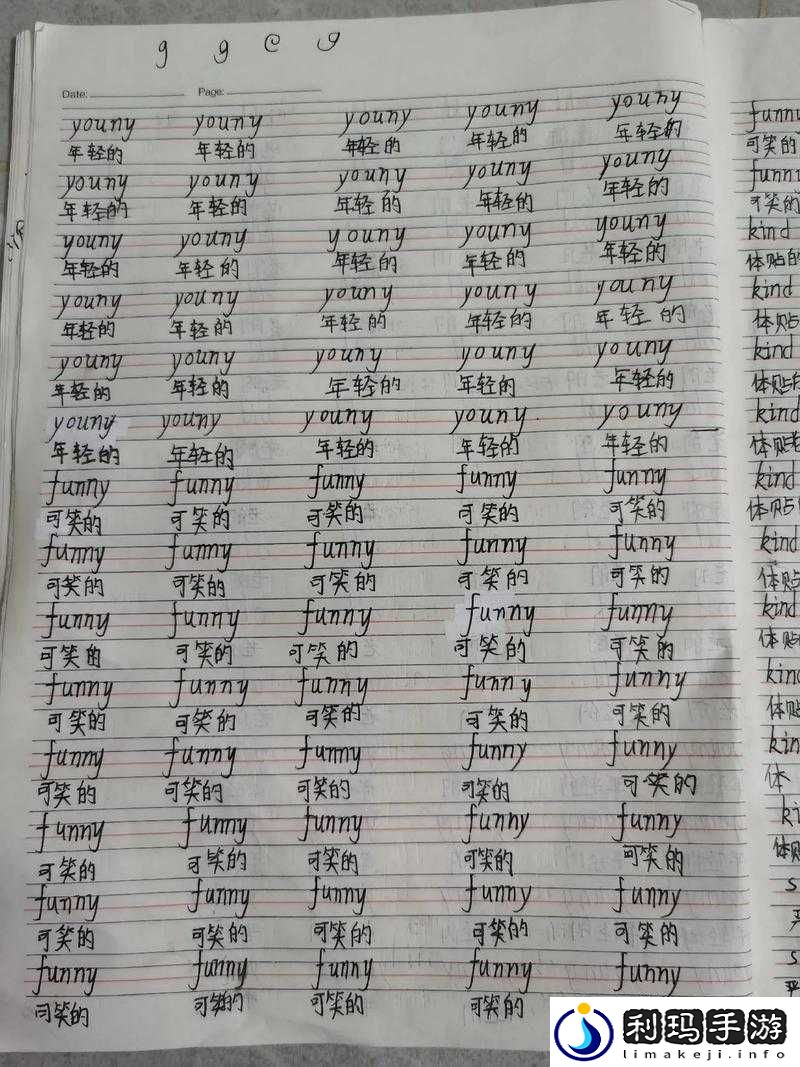 g g e g
Date: Page:
youny youny youny youny youny
年轻的 年轻的 年轻的 年轻的 年轻的
youny youny youny youny youny
年轻的 年轻的 年轻的 年轻的 年轻的
youny youny youny youny youny
年轻的 年轻的 年轻的 年轻的 年轻的
youny youny youny youny youny
年轻的 年轻的 年轻的 年轻的 年轻的
youny youny youny youny youny
年轻的 年轻的 年轻的 年轻的 年轻的
youny youny youny youny youny
年轻的 年轻的 年轻的 年轻的 年轻的
funny funny funny funny funny
可笑的 可笑的 可笑的 可笑的 可笑的
funny funny funny funny funny
可笑的 可笑的 可笑的 可笑的 可笑的
funny funny funny funny funny
可笑的 可笑的 可笑的 可笑的 可笑的
funny funny funny funny funny
可笑的 可笑的 可笑的 可笑的 可笑的
funny funny funny funny funny
可笑的 可笑的 可笑的 可笑的 可笑的
funny funny funny funny funny
可笑的 可笑的 可笑的 可笑的 可笑的
funny funny funny funny funny
可笑的 可笑的 可笑的 可笑的 可笑的
funny funny funny funny funny
可笑的 可笑的 可笑的 可笑的
funny
可笑的
funny
可笑的
kind
体贴的
kind
体贴
kind
体贴的
kind
体贴
kind
体贴
kind
体贴
kind
体贴
kind
体贴
kin
体
ki
体贴
s
s
利玛手游
limakeji.info